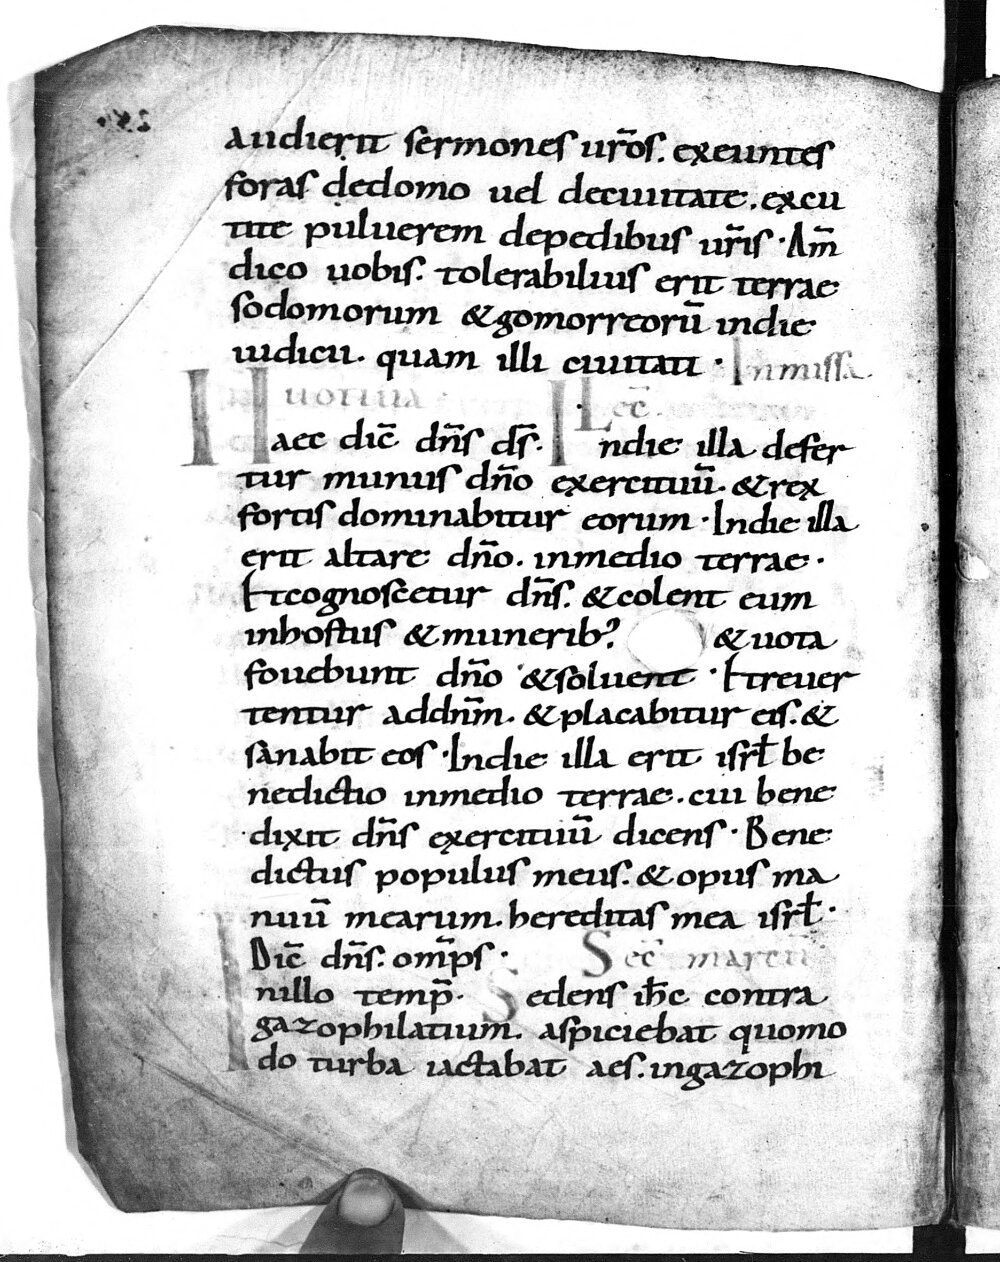 audierit sermones ur̄os. exeuntes
foras dedomo uel deciuitate. excu
tite puluerem depedibus ur̄is · Am̄
dico uobis. tolerabilius erit terrae
sodomorum &gomorreorū indie
iudicii. quam illi ciuitati · Inmissa
uotiua Lec̄
Haec dic̄ dn̄s ds̄. Indie illa defer
tur munus dn̄o exercituū. &rex
fortis dominabitur eorum · Indie illa
erit altare dn̄o. inmedio terrae ·
Etcognoscetur dn̄s. &colent eum
inhostiis &munerib; &uota
fouebunt dn̄o &soluent · Etreuer
tentur addn̄m. &placabitur eis. &
sanabit eos · Indie illa erit isrł be
nedictio inmedio terrae. cui bene
dixit dn̄s exercituū dicens · Bene
dictus populus meus. &opus ma
nuū mearum. hereditas mea isrł ·
Dic̄ dn̄s. om̄ps · Sec̄ marcū
Inillo temp̄. Sedens ih̄c contra
gazophilatium. aspiciebat quomo
do turba iactabat aes. ingazophi